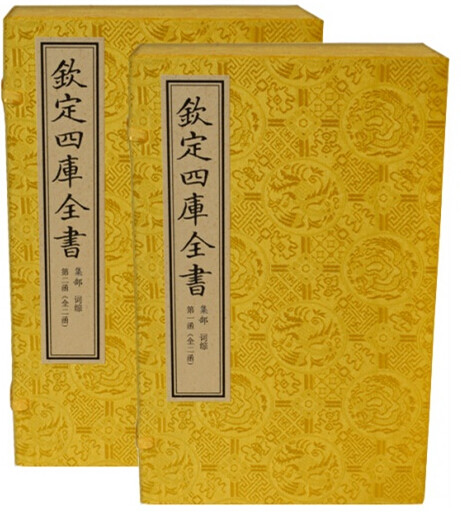 欽定四庫全書
集部 词综
第二函（全二函）
欽定四庫全書
集部 词综
第一函（全二函）